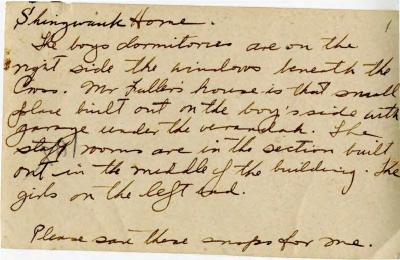 Shingwauk Home.
The boys dormitories are on the
right side the windows beneath the
Cross. Mr Fullers house is that small
place built out on the boy's side with
garage under the verandah. The
staff rooms are in the section built
out in the middle of the building. The
girls on the left end.
Please save these snaps for me.